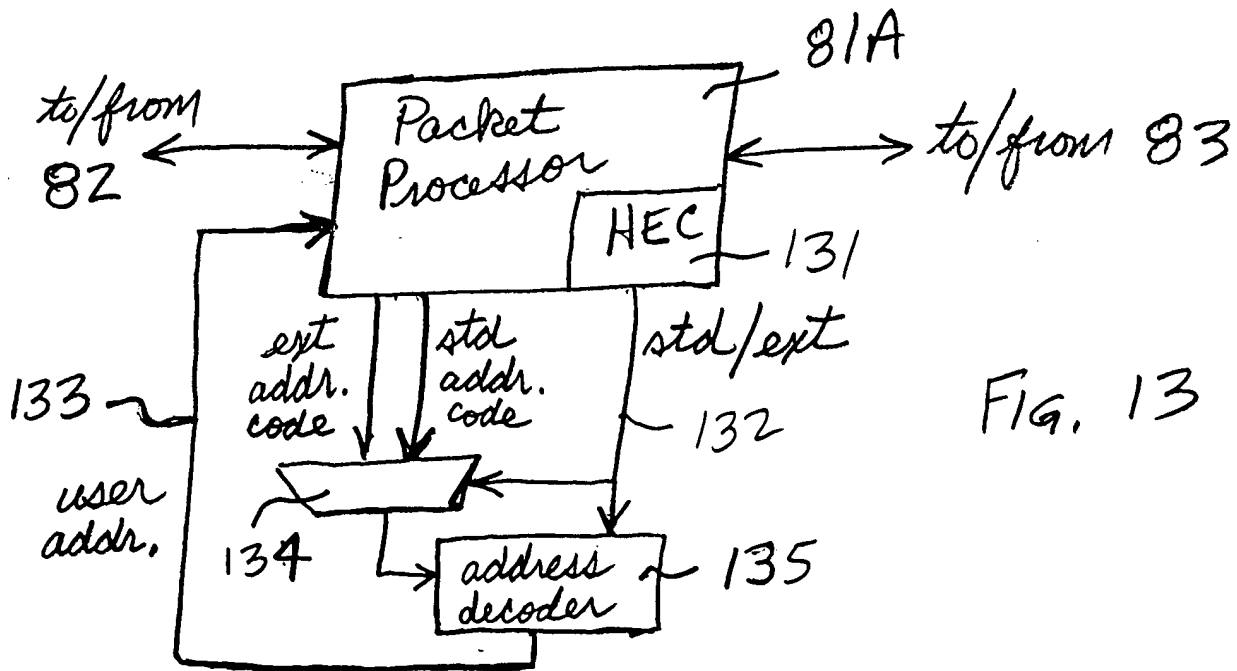 81A
to/from
82
Packet
Processor
to/from 83
HEC
131
ext
addr.
code
std
addr.
code
std/ext
132
133
FIG. 13
user
addr.
134
address
decoder
135